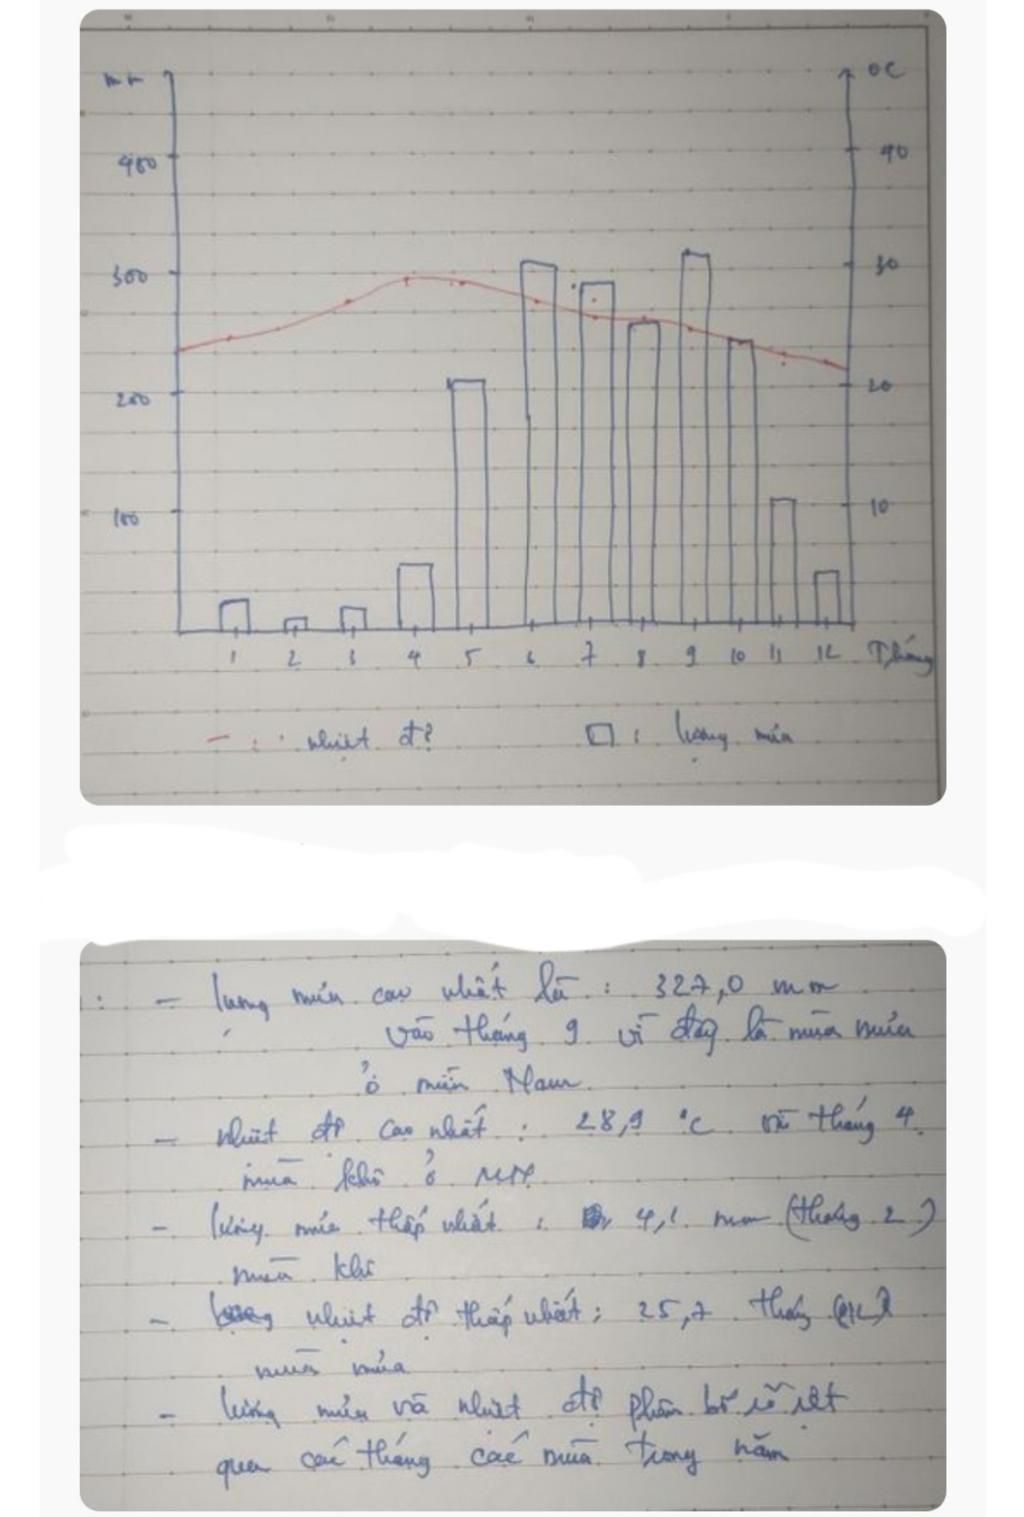 mm
°C
400
40
300
30
200
20
100
10
1 2 3 4 5 6 7 8 9 10 11 12 Tháng
nhiệt độ : lượng mưa
: - lượng mưa cao nhất là : 327,0 mm
vào tháng 9 vì đây là mùa mưa
ở miền Nam
- nhiệt độ cao nhất : 28,9 °C tháng 4
mùa khô ở
- lượng mưa thấp nhất : 4,1 mm (tháng 2)
mùa khô
- nhiệt độ thấp nhất : 25,7 tháng (12)
mùa mưa
- lượng mưa và nhiệt độ phân bố rõ rệt
qua các tháng các mùa trong năm